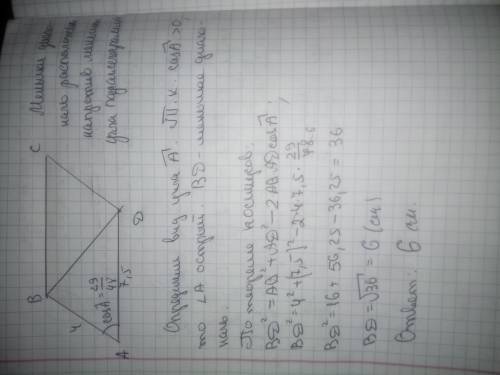 B
C
4
cosA = 29/48
A
7,5
D
Меньшая диаго-
наль расположена
напротив меньшего
угла параллелограмма
Определим вид угла A. Т.к. cosA > 0,
то ∠A острый. BD - меньшая диаго-
наль.
По теореме косинусов:
BD² = AB² + AD² - 2AB·AD cosA;
BD² = 4² + (7,5)² - 2·4·7,5·29/48;
BD² = 16 + 56,25 - 36,25 = 36
BD = √36 = 6 (см)
Ответ: 6 см.